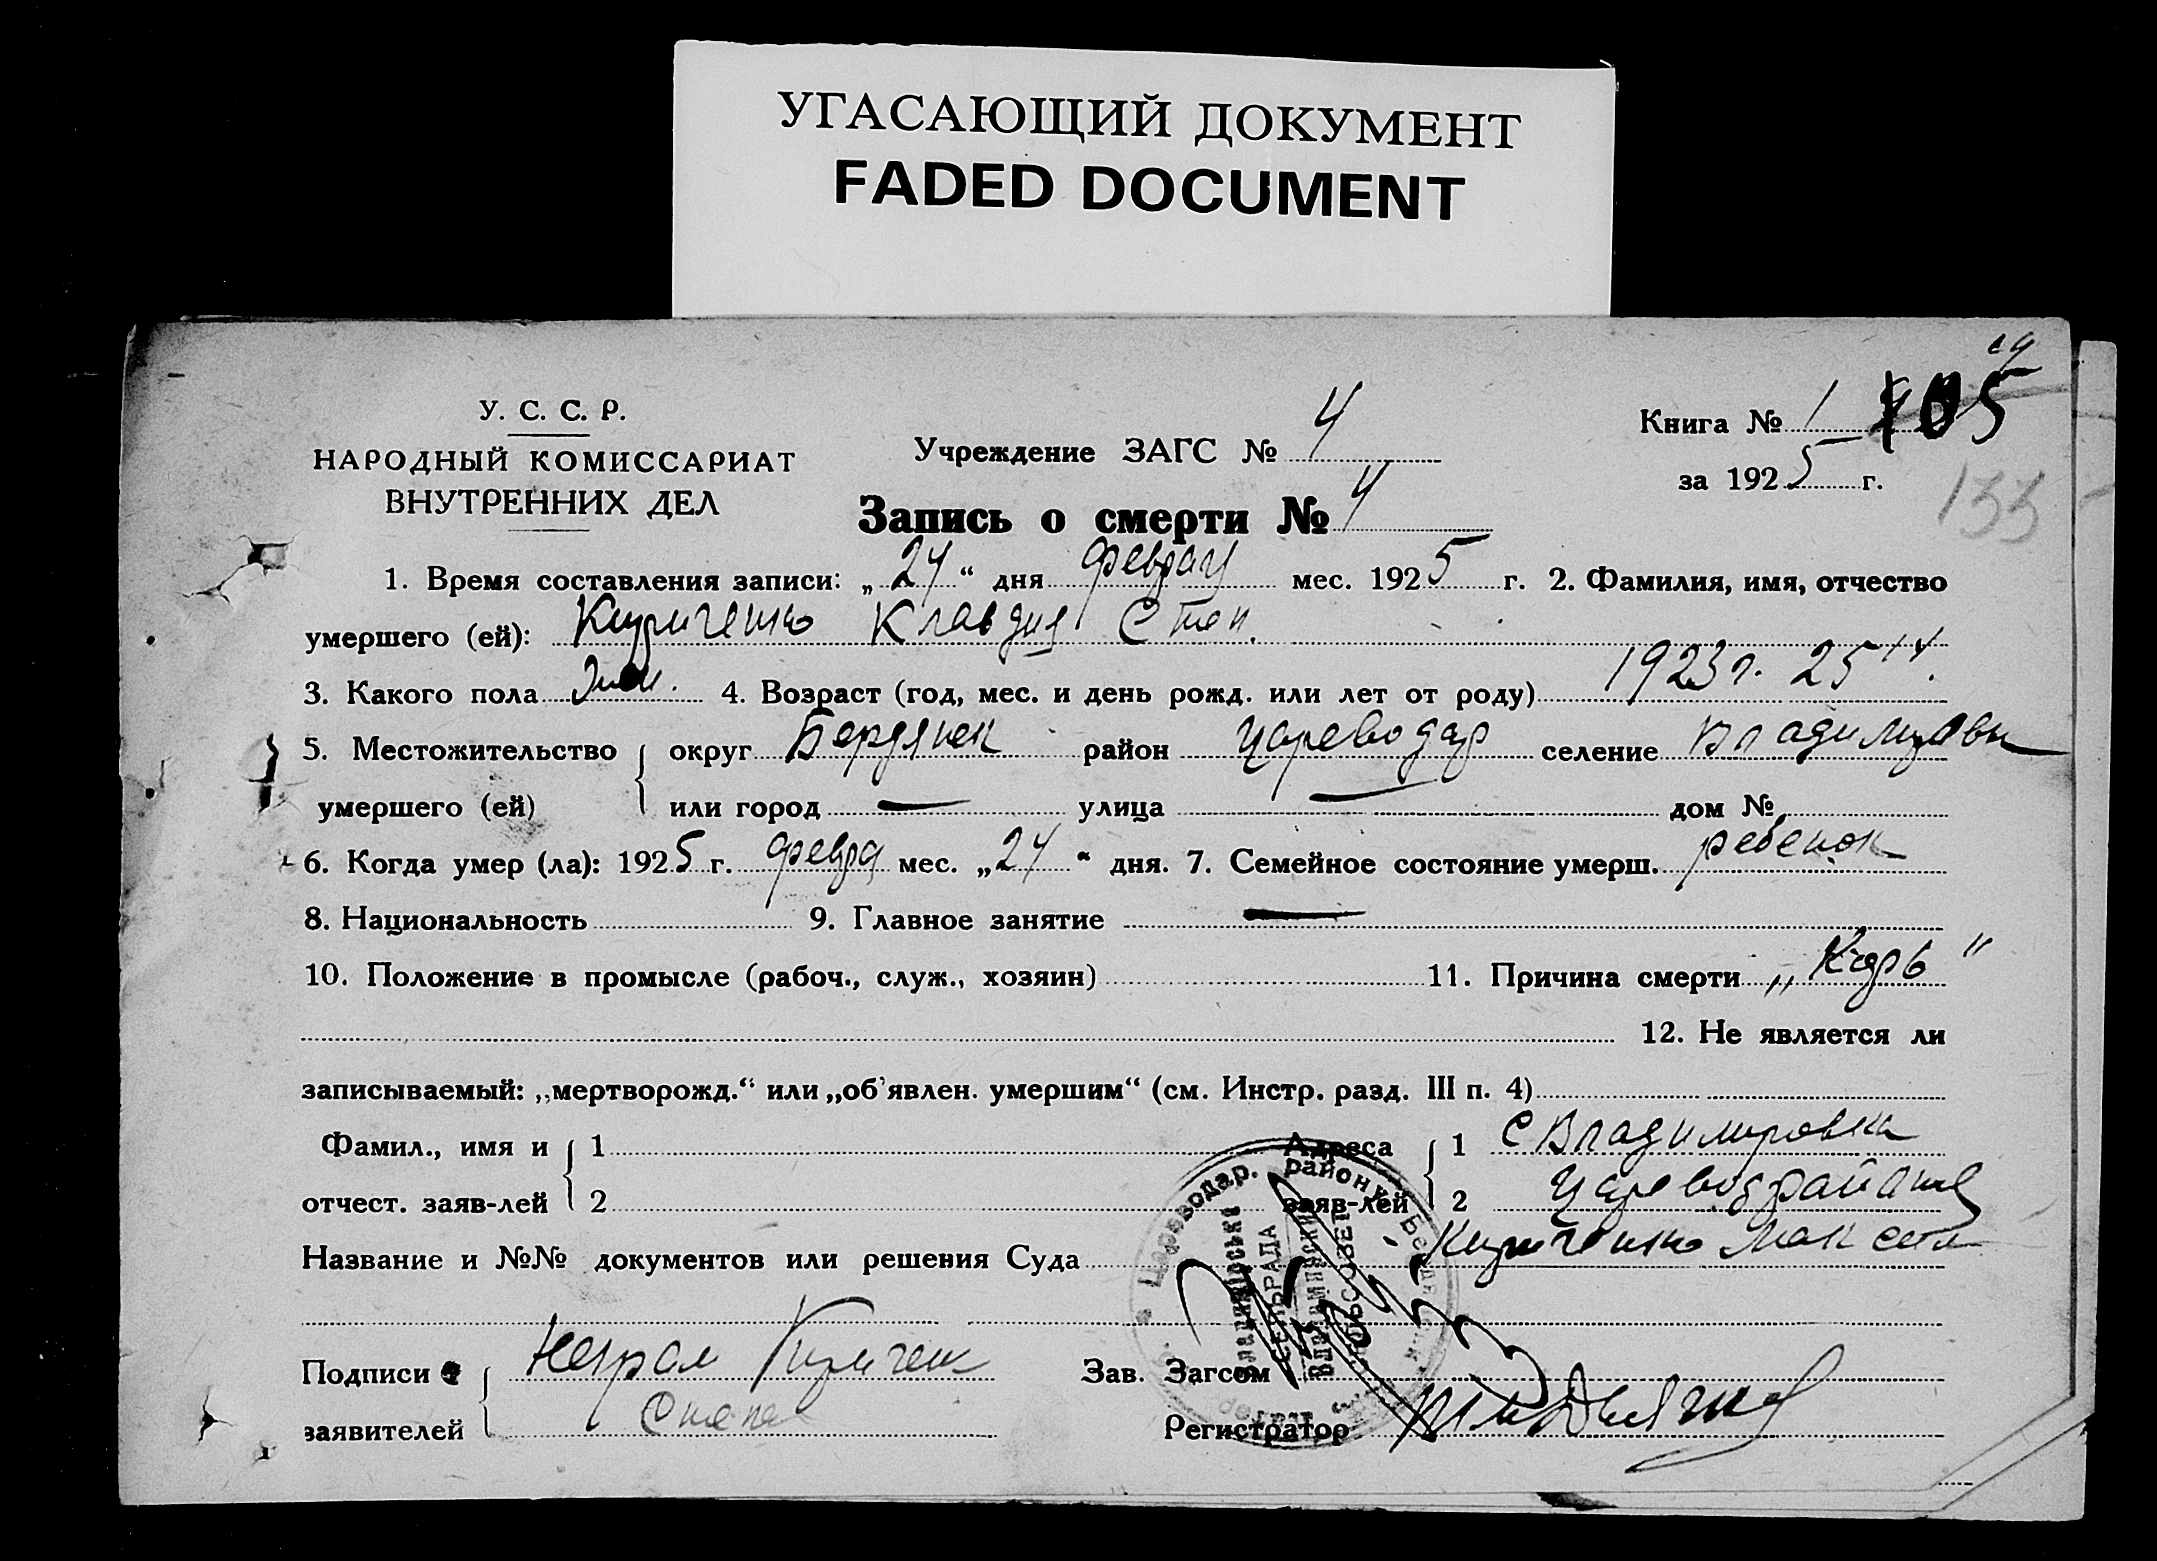 УГАСАЮЩИЙ ДОКУМЕНТ
FADED DOCUMENT
У. С. С. Р.
НАРОДНЫЙ КОМИССАРИАТ
ВНУТРЕННИХ ДЕЛ
Учреждение ЗАГС № 4
Книга № 1 105
за 1925 г.
133
Запись о смерти № 4
1. Время составления записи: „24“ дня феврал мес. 1925 г. 2. Фамилия, имя, отчество
умершего (ей): Кириченко Клавдия Степ.
3. Какого пола жен. 4. Возраст (год, мес. и день рожд. или лет от роду) 1923 г. 25
5. Местожительство округ Бердянск район Цареводар селение Владимировк
умершего (ей) или город — улица — дом №
6. Когда умер (ла): 1925 г. февра мес. „24“ дня. 7. Семейное состояние умерш. ребенок
8. Национальность 9. Главное занятие —
10. Положение в промысле (рабоч., служ., хозяин) 11. Причина смерти „Корь“
12. Не является ли
записываемый: „мертворожд.“ или „об'явлен. умершим“ (см. Инстр. разд. III п. 4)
Фамил., имя и 1 Адреса 1 С Владимировка
отчест. заяв-лей 2 заяв-лей 2
Название и №№ документов или решения Суда Кириченко
Подписи Кириченк Зав. Загсом
заявителей Степа Регистратор
Цареводар. район
СЕЛЬРАДА